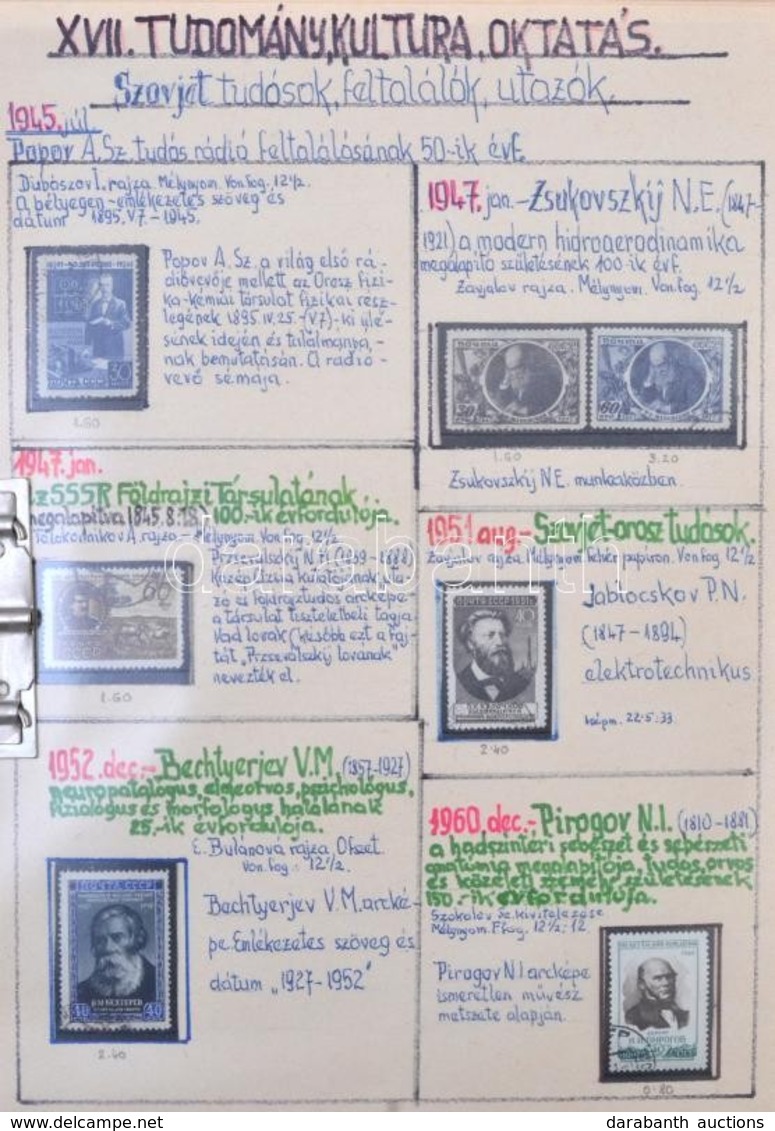 XVII. TUDOMÁNY, KULTURA, OKTATÁS.
Szovjet tudósok, feltalálók, utazók.
1945. júl.
Popov A.Sz. tudós rádió feltalálásának 50-ik évf.
Dubászov I. rajza. Mélynyom. Von.fog. 12½.
a bélyegen-emlékezetes szöveg és
dátum 1895.V.7.-1945.
Popov A.Sz. a világ első rá-
dióvevője mellett az Orosz fizi-
ka-kémiai társulat fizikai resz-
legének 1895.IV.25.-(V.7)-ki ülé-
sének idején és találmánya,-
nak bemutatásán. A radió-
vevő sémája.
30
1.60
1947. jan.-Zsukovszkij N.E. (1847-
1921) a modern hidroaerodinamika
megalapitó születésének 100-ik évf.
Zavjalov rajza. Mélynyom. Von.fog. 12½
ПОЧТА СССР
30
ПОЧТА СССР
60
1.60
3.20
Zsukovszkij N.E. munkaközben.
1947. jan.
az SSSR Földrajzi Társulatának
megalapitva 1845.8.18.) 100-ik évfordulója.
A. rajza - Mélynyom. Von.fog. 12½
Przsevalszkij N.M. (1839-1888)
Középázsia kutatójának, uta-
zó és földrajztudós arcképe-
a társulat tiszteletbeli tagja
Vad lovak (később ezt a faj-
tát "Przsevalszkij lovának"
nevezték el.
60
1.60
1951 aug.- Szovjet-orosz tudósok.
Zavjalov rajza Mélynyom. fehér papiron. Von.fog. 12½
ПОЧТА СССР 1951
40
Jablocskov P.N.
(1847-1894)
elektrotechnikus
középm. 22.5:33
2.40
1952. dec.- Bechtyerjev V.M. (1857-1927)
neuropatalógus, elmeorvos, pszichológus,
fiziológus és morfológus halálának
25.-ik évfordulója.
E. Bulánova rajza Ofszet.
Von.fog. 12½
ПОЧТА СССР
В.М.БЕХТЕРЕВ
40 40
Bechtyerjev V.M. arcké-
pe. Emlékezetes szöveg és
dátum "1927-1952"
2.40
1960. dec.- Pirogov N.I. (1810-1881)
a hadszintéri sebészet és sebészeti
anatómia megalapitója, tudós, orvos
és közéleti személy születésének
150.-ik évfordulója.
Szokolov Sz. kivitelezése
Mélynyom. F.fog. 12½; 12.
Pirogov N.I arcképe
ismeretlen művész
metszete alapján.
Н.И.ПИРОГОВ
0.80
darabanth
darabanth auctions